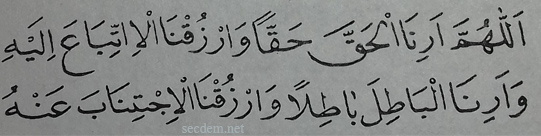 اَللّٰهُمَّ اَرِنَا الْحَقَّ حَقًّا وَارْزُقْنَا الْاِتِّبَاعَ اِلَيْهِ
وَاَرِنَا الْبَاطِلَ بَاطِلًا وَارْزُقْنَا الْاِجْتِنَابَ عَنْهُ
secdem.net